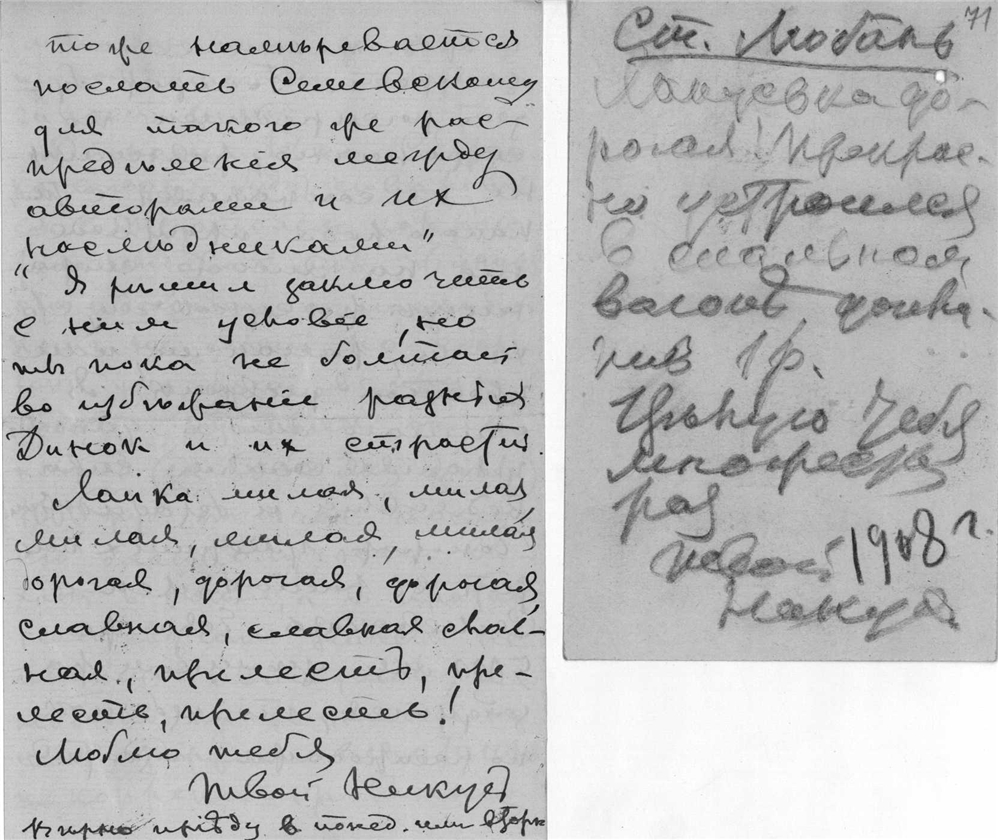 тоже намѣревается
послать Семевскому
для такого же рас-
предѣленія между
авторами и их
наслѣдниками"
"Я рѣшил заключить
с ним условіе, но
ты пока не болтай
во избѣжаніе
Динок и их страстей.
Лапка милая, милая
милая, милая, милая
дорогая, дорогая, дорогая,
славная, славная слав-
ная, прелесть, пре-
лесть, прелесть!
Люблю тебя
Твой
Вѣрно пріѣду в понед. или вторн
71
Ст. Любань
до-
рогая! Прекрас-
но устроился
в спальном
вагонѣ,
нив 1 р.
Цѣлую тебя
многое
раз
твой
1908 г.